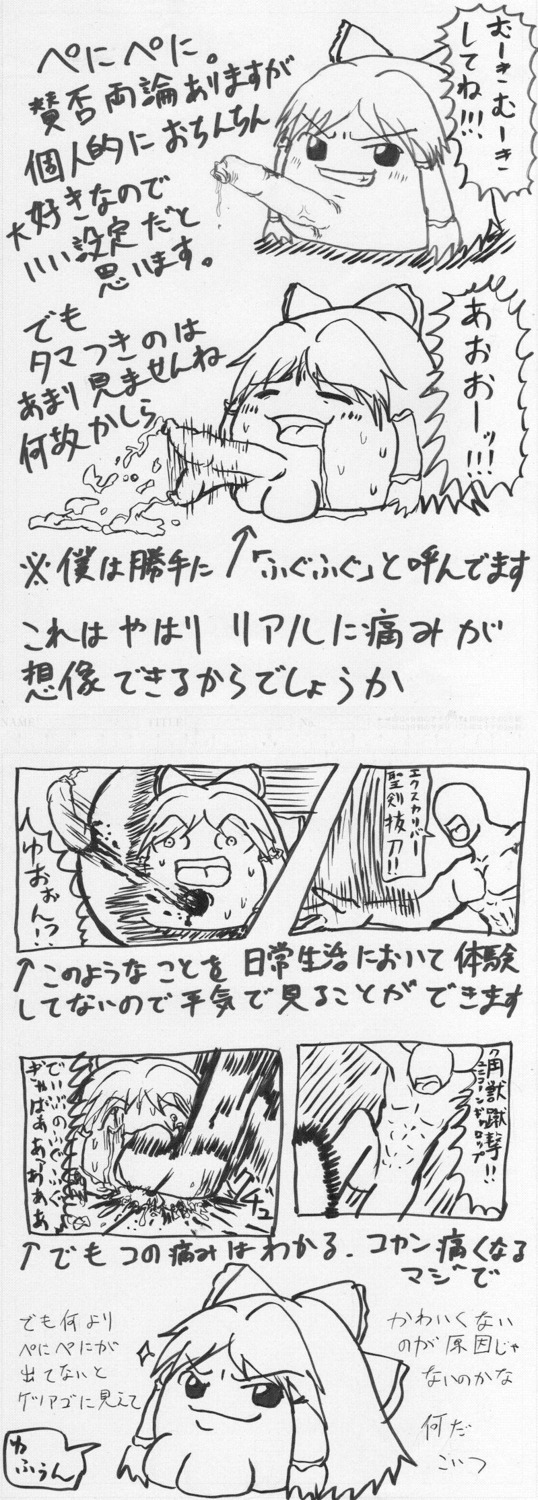 むーきこむーきこ
してね!!!
ぺにぺに。
賛否両論ありますが
個人的におちんちん
大好きなので
いい設定だと
思います。
あおおーッ!!!
でも
タマつきのは
あまり見ませんね
何故かしら
※僕は勝手に↑「ふぐふぐ」と呼んでます
これはやはりリアルに痛みが
想像できるからでしょうか
NAME
TITLE
No.
エクスカリバー
聖剣抜刀!!
ゆおおんっ!?
↑このようなことを日常生活において体験
してないので平気で見ることができます
ユニコーンギャロップ
一角獣蹴撃!!
でいぶのふぐふぐ
ぎゃばぁあーあああ
グチュ
↑でもコの痛みはわかる.コカン痛くなる
マジで
でも何より
ぺにぺにが
出てないと
ケツアゴに見えて
かわいくない
のが原因じゃ
ないのかな
何だ
こいつ
ゆふぅん